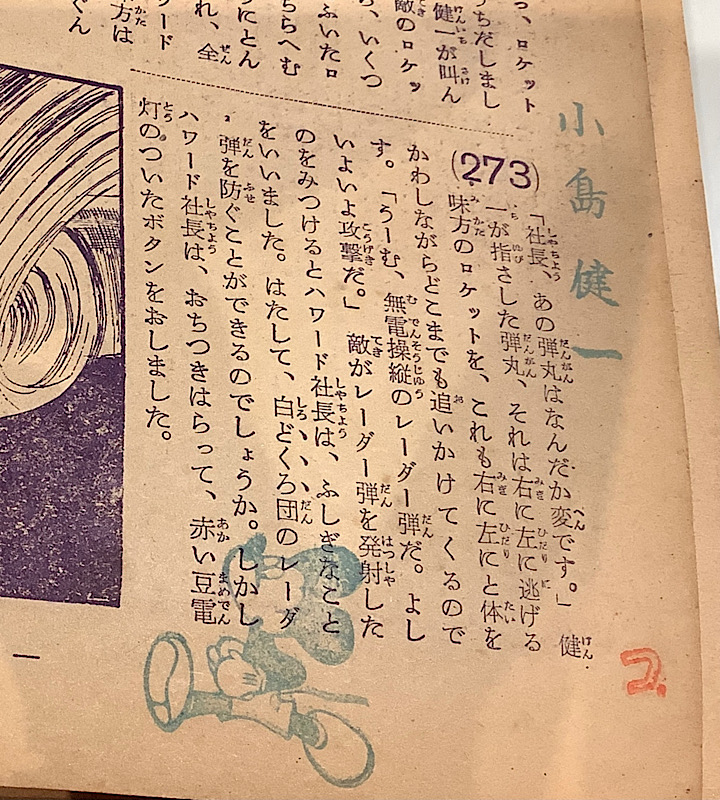 、ロケット
ちだしまし
健一が叫ん
敵のロケッ
、いくつ
ふいたロ
ちらへむ
うにとん
れ、全
ワード
方は
ぐん
小島健一
(273)
「社長、あの弾丸はなんだか変です。」 健
一が指さした弾丸、それは右に左に逃げる
味方のロケットを、これも右に左にと体を
かわしながらどこまでも追いかけてくるので
す。「うーむ、無電操縦のレーダー弾だ。よし
いよいよ攻撃だ。」 敵がレーダー弾を発射した
のをみつけるとハワード社長は、ふしぎなこと
をいいました。はたして、白どくろ団のレーダ
ー弾を防ぐことができるのでしょうか。しかし
ハワード社長は、おちつきはらって、赤い豆電
灯のついたボタンをおしました。